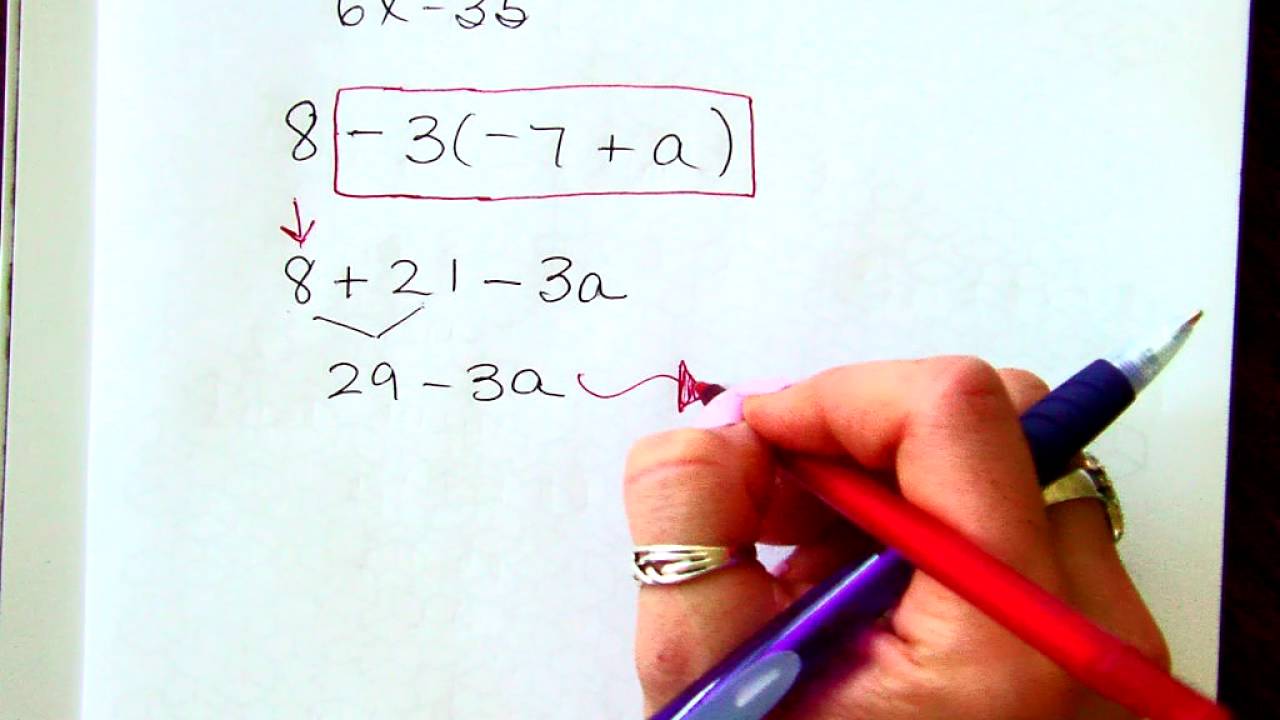 6x-35
8 - 3(-7 + a)
8 + 21 - 3a
29 - 3a